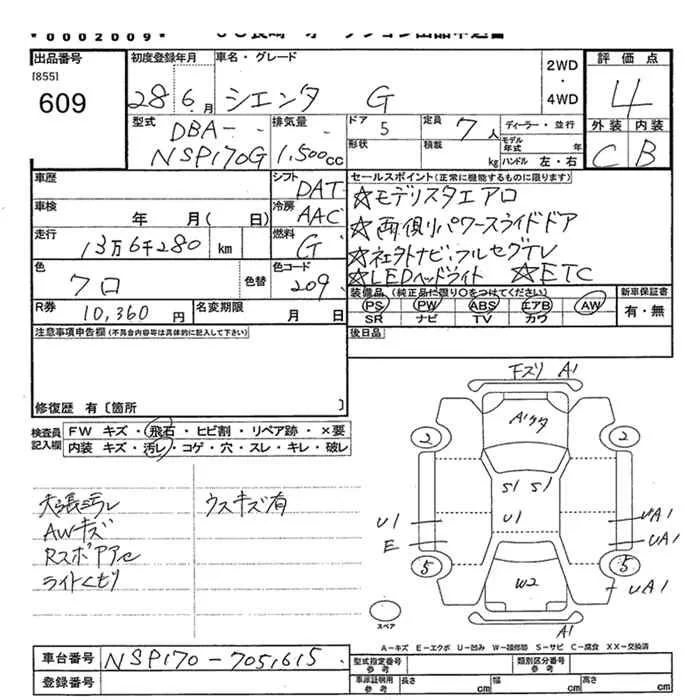 0002009
出品番号
[855]
609
初度登録年月
28 6. 月
車名・グレード
シエンタ G
2WD
・
4WD
評価点
4
外装 内装
C B
型式
DBA-
NSP170G
排気量
1,500cc
ドア
5
形状
定員
7人
積載
kg
ディーラー・並行
モデル年式
年
ハンドル 左・右
車歴
車検
年 月( 日)
走行
13万6千280 km
色
クロ
色替
シフト
DAT
冷房
AAC
燃料
G
色コード
209
R券
10,360 円
名変期限
月 日
セールスポイント(正常に機能するものに限ります)
☆モデリスタエアロ
☆両側パワースライドドア
☆社外ナビ・フルセグTV
☆LEDヘッドライト ☆ETC
装備品(純正品に限り○をつけてください)
PS PW ABS エアB AW
SR ナビ TV カワ
新車保証書
有・無
後日品
注意事項申告欄(不具合内容等は具体的に記入して下さい)
修復歴 有〔箇所 〕
検査員記入欄
FW キズ・飛石・ヒビ割・リペア跡・×要
内装 キズ・汚レ・コゲ・穴・スレ・キレ・破レ
天張汚レ
AWキズ
RスポアアC
ライトくもり
ウスキズ有
Fスリ A1
Aコケタ
2 2
S1 S1
U1
U1
E
UA1
UA1
5 5
W2
UA1
A1
スペア
A-キズ E-エクボ U-凹み W-補修跡 S-サビ C-腐食 XX-交換済
車台番号
NSP170-7051615
登録番号
型式指定番号
参考
類別区分番号
参考
車庫証明用
参考
長さ cm
幅 cm
高さ cm